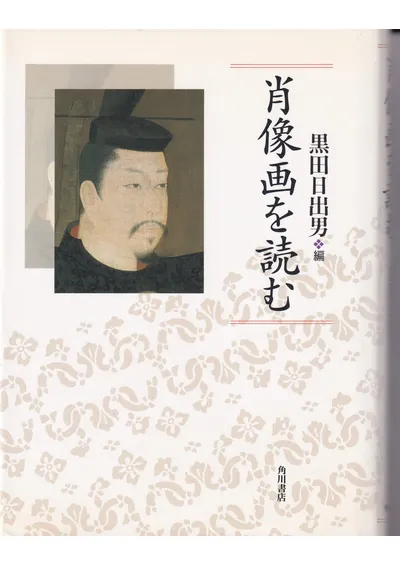 肖像画を読む
黒田日出男❖編
角川書店